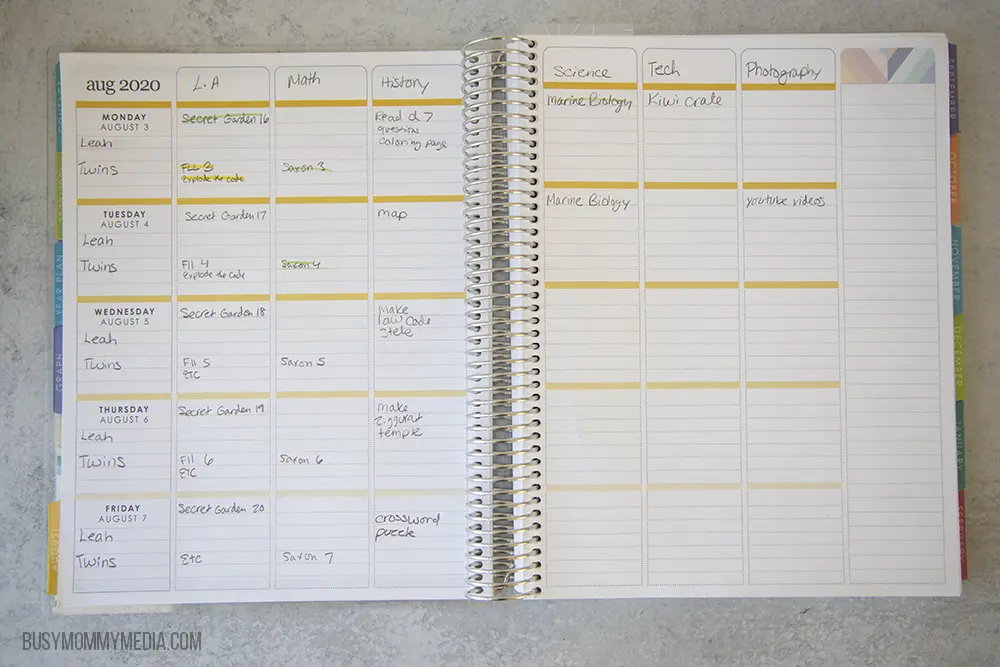 aug 2020 L.A Math History
MONDAY
AUGUST 3
Leah
Twins
Secret Garden 16
FLL 3
Explode the code
Saxon 3
Read ch 7
questions
coloring page
TUESDAY
AUGUST 4
Leah
Twins
Secret Garden 17
Fll 4
Explode the Code
Saxon 4
map
WEDNESDAY
AUGUST 5
Leah
Twins
Secret Garden 18
Fll 5
ETC
Saxon 5
Make
law code
stele
THURSDAY
AUGUST 6
Leah
Twins
Secret Garden 19
Fll 6
ETC
Saxon 6
make
ziggurat
temple
FRIDAY
AUGUST 7
Leah
Twins
Secret Garden 20
Etc
Saxon 7
crossword
puzzle
Science Tech Photography
Marine Biology Kiwi crate
Marine Biology youtube videos
GRAPH
AUGUST
SEPTEMBER
OCTOBER
NOVEMBER
DECEMBER
JANUARY
FEBRUARY
BUSYMOMMYMEDIA.COM